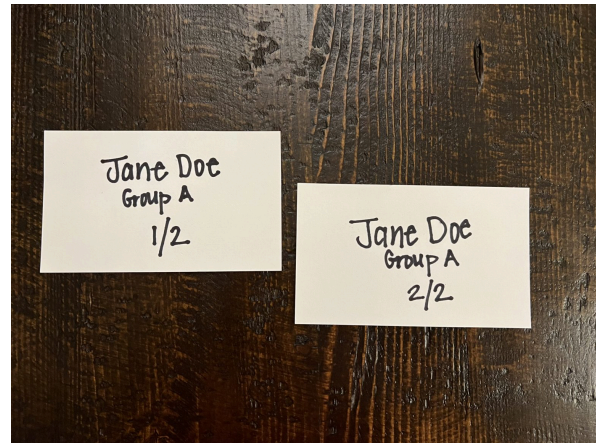 Jane Doe
Group A
1/2
Jane Doe
Group A
2/2